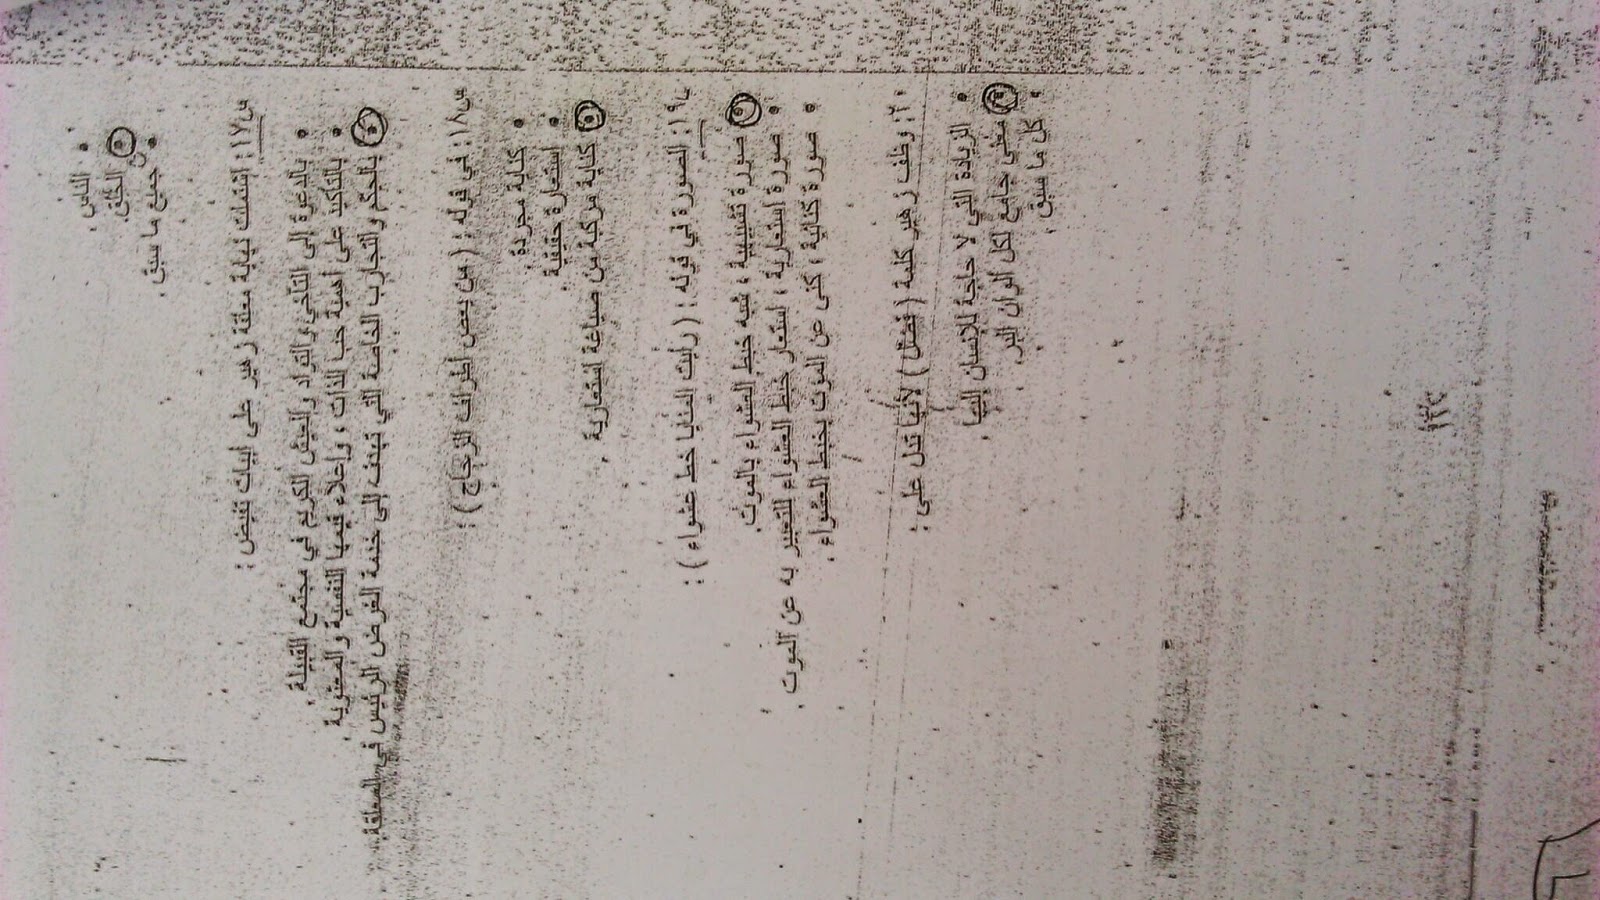 • الناس.
• الخُلُق.
• جميع ما سبق.
س١٧: اشتملت نهاية معلقة زهير على أبيات تفيض:
• بالدعوة إلى التآخي والتواد والعيش الكريم في مجتمع القبيلة
• بالتأكيد على أهمية حب الذات، وإعلاء قيمها النفسية والمعنوية.
• بالحكم والتجارب الخاصة التي تهدف إلى خدمة الغرض الرئيس في المعلقة.
س١٨: في قوله: (من يعص أطراف الزجاج):
• كناية مجردة.
• استعارة حقيقية.
• كناية مركبة من صياغة استعارية.
س١٩: الصورة في قوله: (رأيت المنايا خبط عشواء):
• صورة تشبيهية، شبه خبط العشواء بالموت.
• صورة استعارية، استعار خبط العشواء للتعبير به عن الموت.
• صورة كنائية، كنى عن الموت بخبط العشواء.
٢٠: وظف زهير كلمة (فضل) لأنها تدل على:
• الزيادة التي لا حاجة للإنسان إليها.
• معنى جامع لكل ألوان البر.
• كل ما سبق.